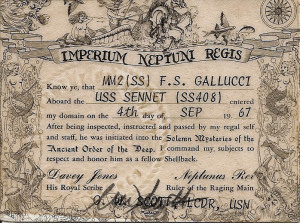 IMPERIUM NEPTUNI REGIS
Know ye, that MM2(SS) F.S. GALLUCCI
Aboard the USS SENNET (SS408) entered
my domain on the 4th day of SEP 1967
After being inspected, instructed and passed by my regal self
and staff, he was initiated into the Solemn Mysteries of the
Ancient Order of the Deep. I command my, subjects to
respect and honor him as a fellow Shellback.
Davey Jones Neptunus Rex
His Royal Scribe Ruler of the Raging Main
SCOTT LCDR, USN